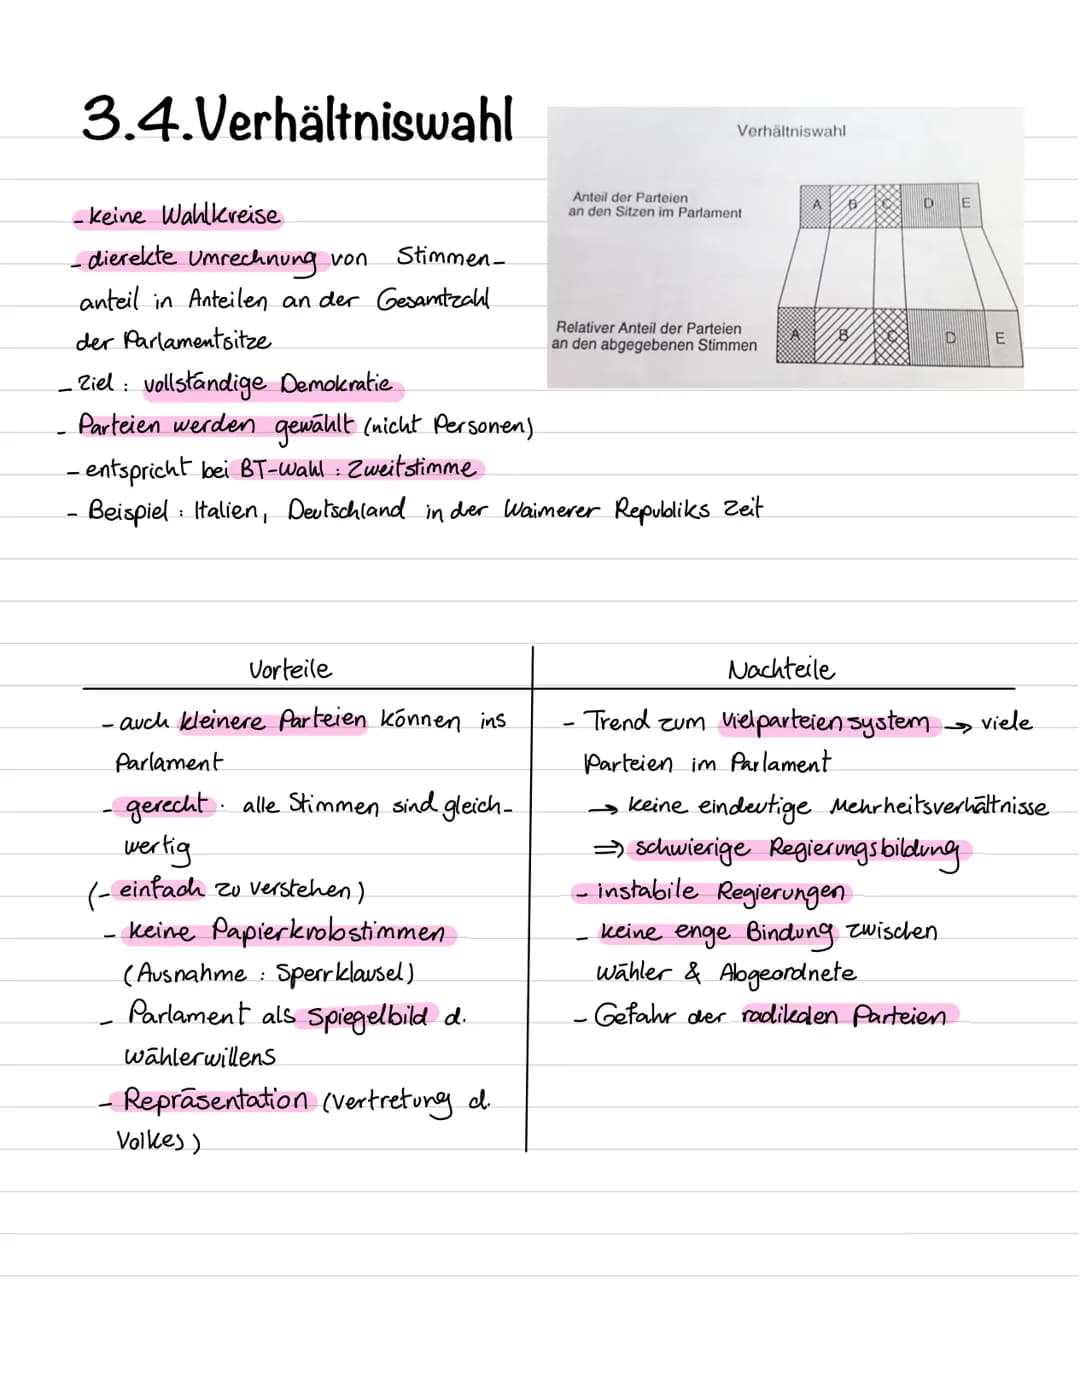 3.4.Verhältniswahl
- keine Wahlkreise
- dierekte Umrechnung von Stimmen-
anteil in Anteilen an der Gesamtzahl
der Parlamentsitze
- Ziel : vollständige Demokratie
- Parteien werden gewählt (nicht Personen)
- entspricht bei BT-Wahl : Zweitstimme
- Beispiel : Italien, Deutschland in der Waimerer Republiks Zeit
Verhältniswahl
Anteil der Parteien
an den Sitzen im Parlament
A B C D E
Relativer Anteil der Parteien
an den abgegebenen Stimmen
A B C D E
Vorteile
- auch kleinere Parteien können ins
Parlament
- gerecht : alle Stimmen sind gleich-
wertig
(- einfach zu verstehen)
- keine Papierkrobstimmen
(Ausnahme : Sperrklausel)
- Parlament als Spiegelbild d.
Wählerwillens
- Repräsentation (Vertretung d.
Volkes)
Nachteile
- Trend zum Vielparteiensystem → viele
Parteien im Parlament
→ keine eindeutige Mehrheitsverhältnisse
⇒ schwierige Regierungsbildung
- instabile Regierungen
- keine enge Bindung zwischen
Wähler & Abgeordnete
- Gefahr der radikalen Parteien